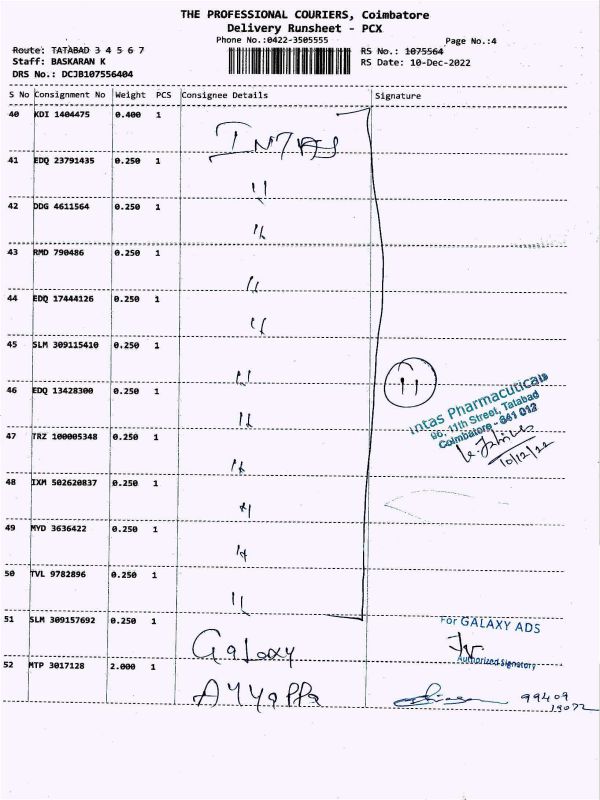 THE PROFESSIONAL COURIERS, Coimbatore
Delivery Runsheet - PCX
Phone No.:0422-3505555
Page No.:4
Route: TATABAD 3 4 5 6 7
RS No.: 1075564
Staff: BASKARAN K
RS Date: 10-Dec-2022
DRS No.: DCJB107556404
S No Consignment No Weight PCS Consignee Details Signature
40 KDI 1404475 0.400 1
INTAS
41 EDQ 23791435 0.250 1
"
42 DDG 4611564 0.250 1
"
43 RMD 790486 0.250 1
"
44 EDQ 17444126 0.250 1
"
45 SLM 309115410 0.250 1
"
11
46 EDQ 13428300 0.250 1
"
Intas Pharmaceuticals
96, 11th Street, Tatabad
Coimbatore - 641 012
10/12/22
47 TRZ 100005348 0.250 1
"
48 IXM 502620837 0.250 1
"
49 MYD 3636422 0.250 1
"
50 TVL 9782896 0.250 1
"
51 SLM 309157692 0.250 1
Galaxy
For GALAXY ADS
Authorized Signatory
52 MTP 3017128 2.000 1
Ayyappa
99409
19072